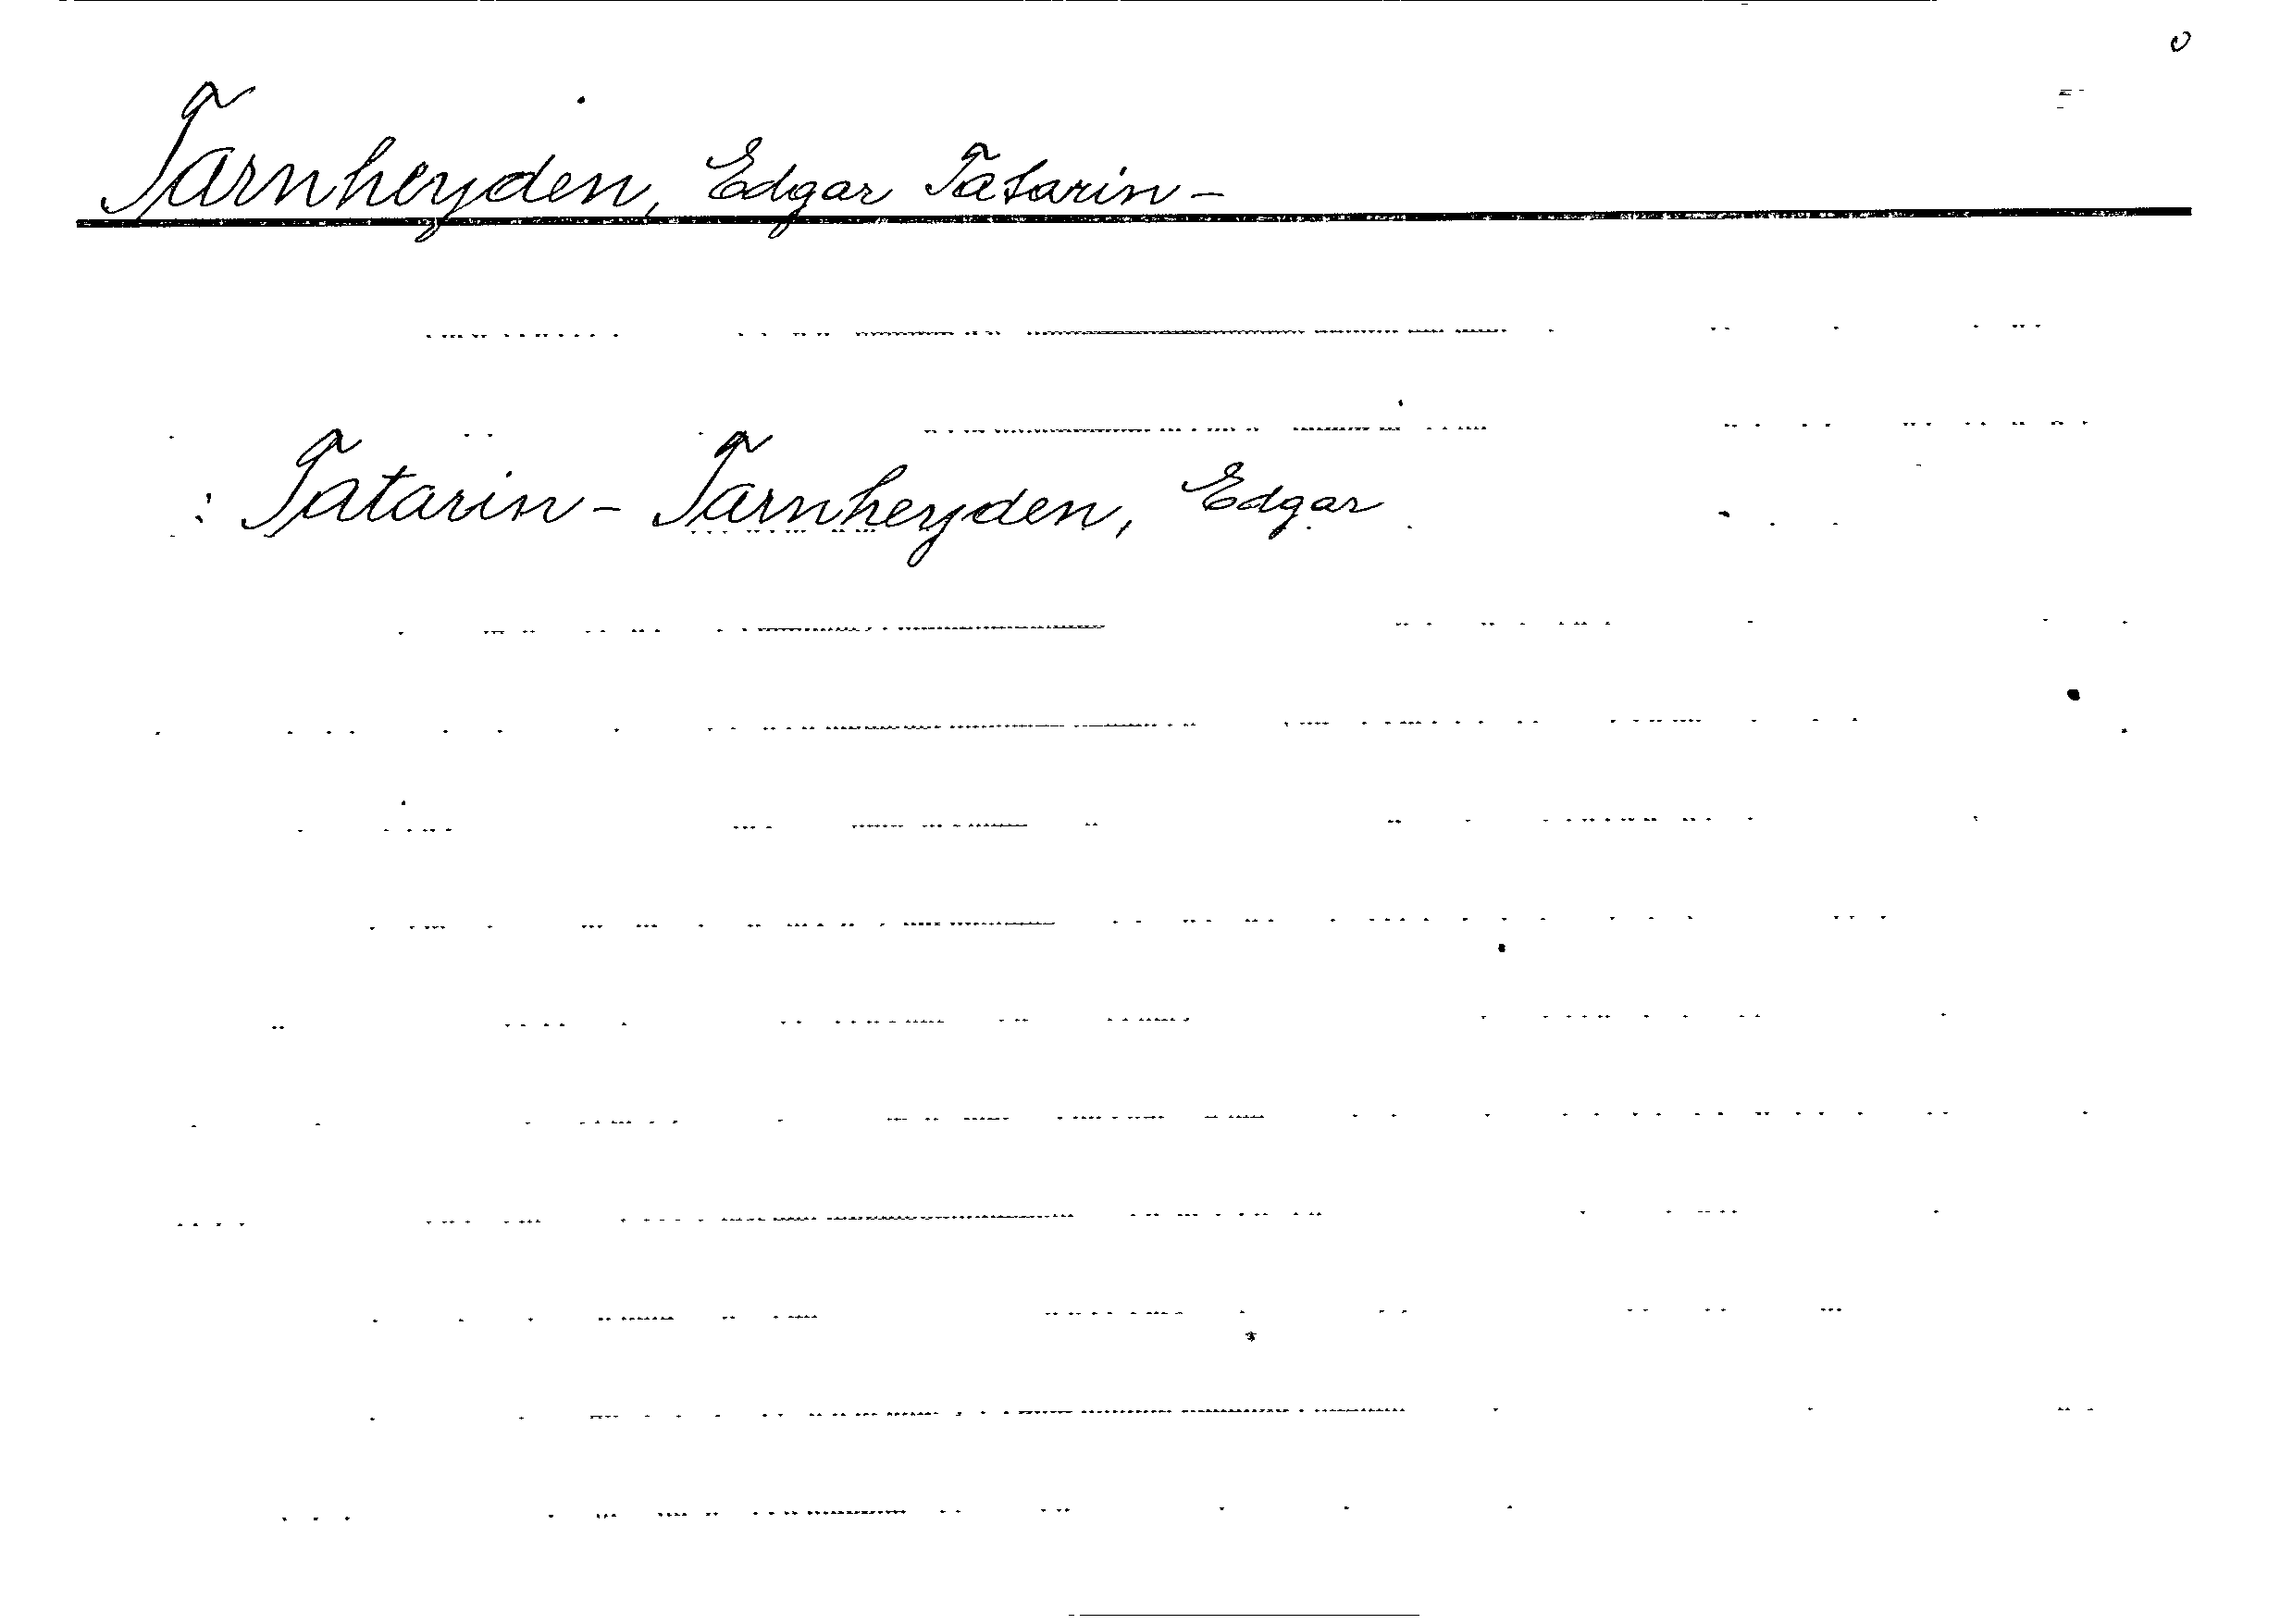 Tarnheyden, Edgar Tatarin-
: Tatarin-Tarnheyden, Edgar